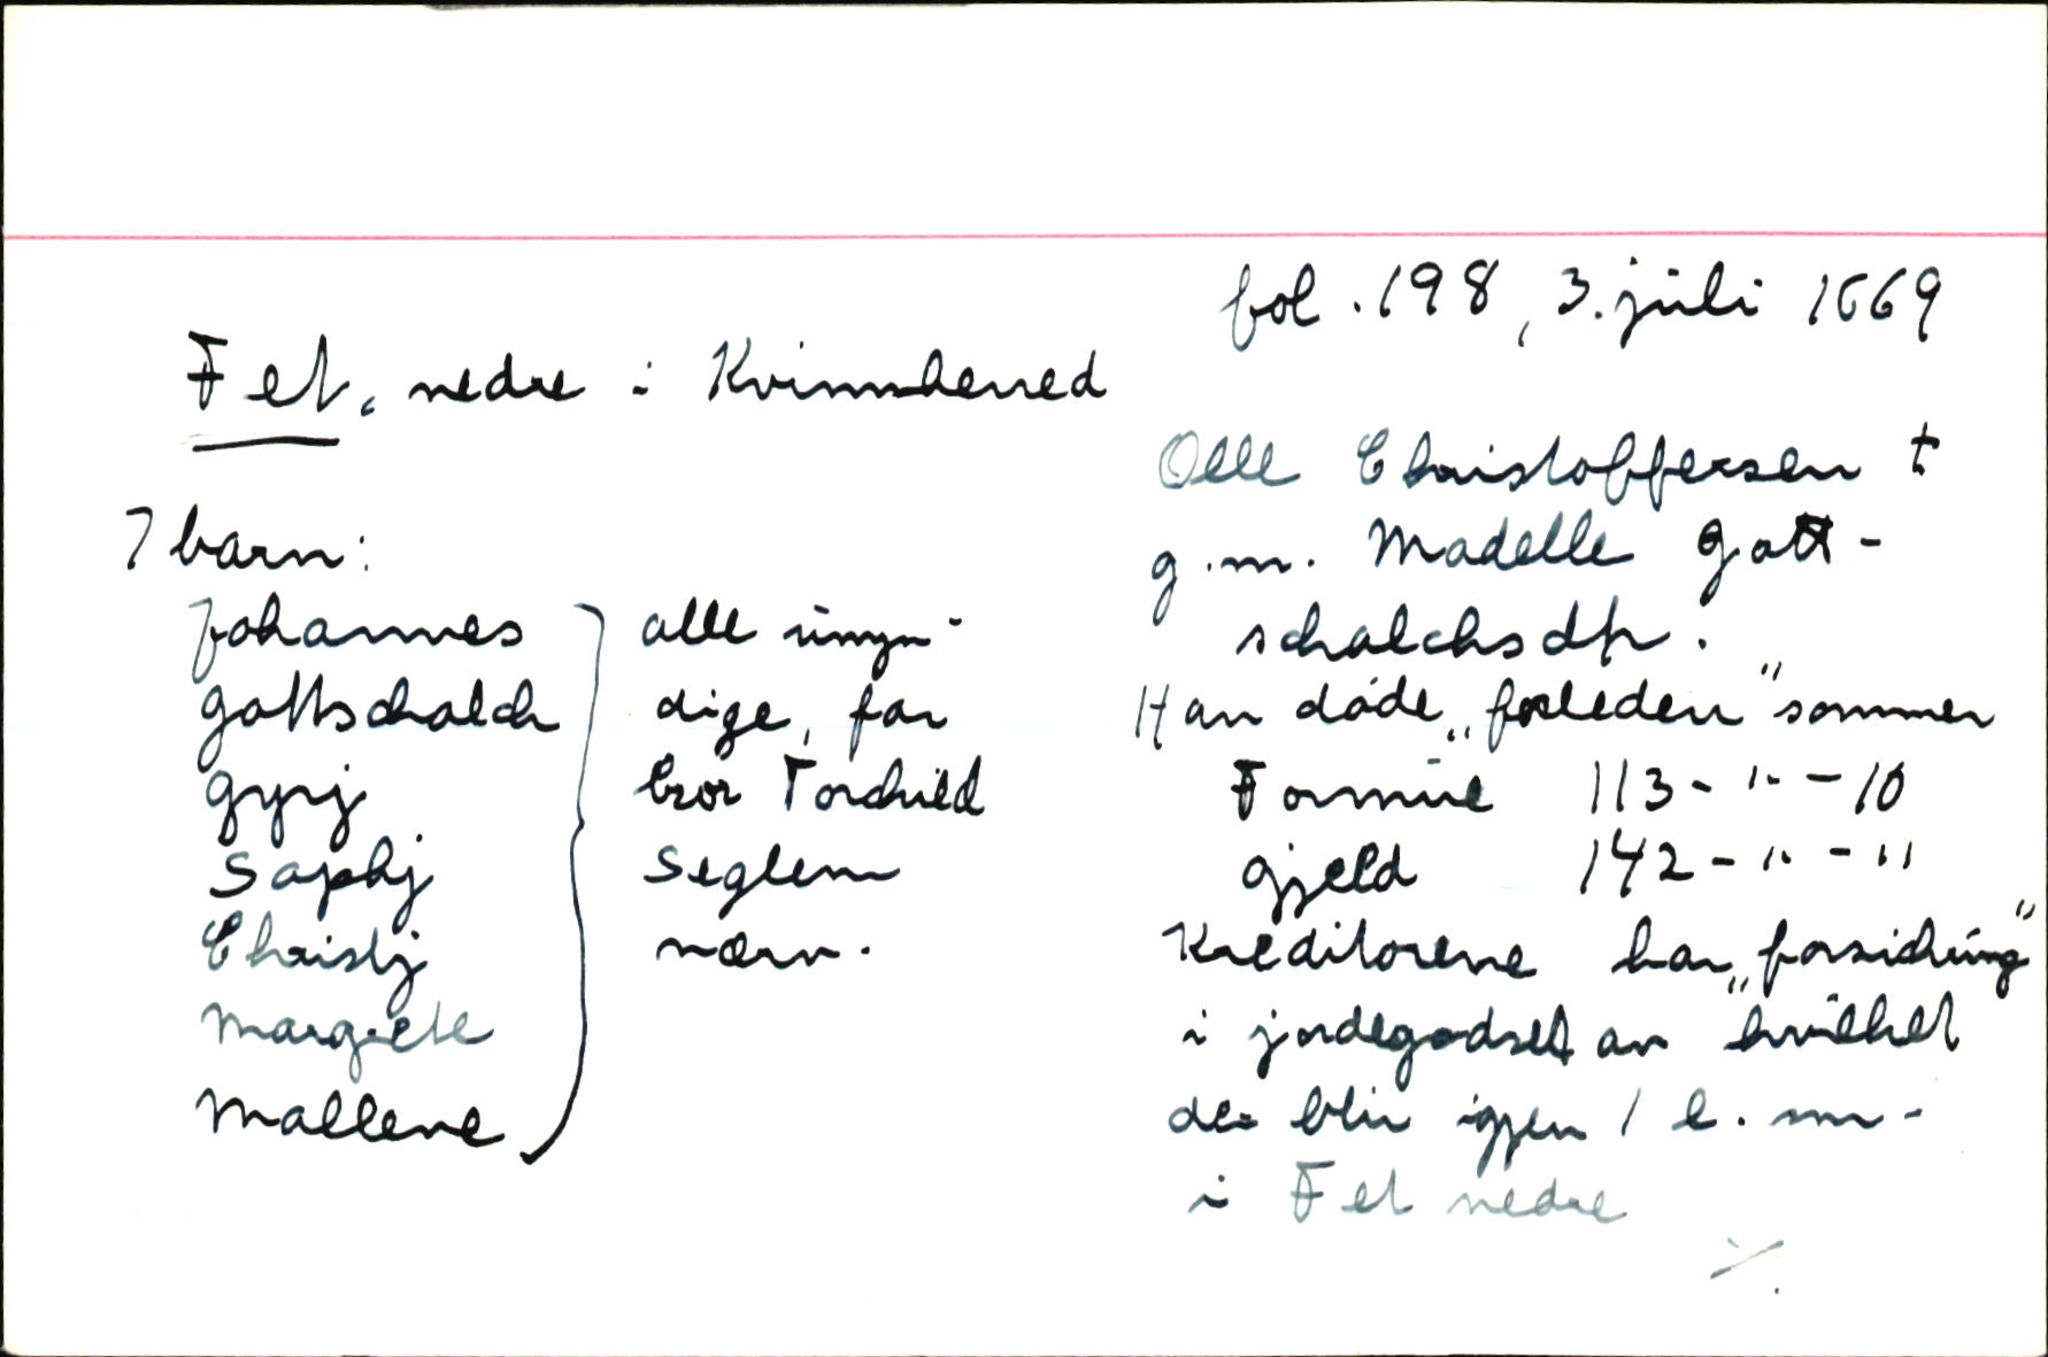 fol. 198, 3. juli 1669
Fet, nedre i Kvinnherred
Olle Christoffersen †
g.m. Madelle Gott-
schalchsdtr.
Han døde „forleden" sommer
Formue 113-"-10
Gjeld 142-"-"
Kreditorene har „forsichring"
i jordegodset av hvilket
der blir igjen 1 l. sm.
i Fet nedre
⁒
7 barn:
Johannes
Gottschalch
Gyrj
Saphj
Christj
Margrete
Mallene
alle umyn-
dige, far
bror Torchild
Seglem
nærv.